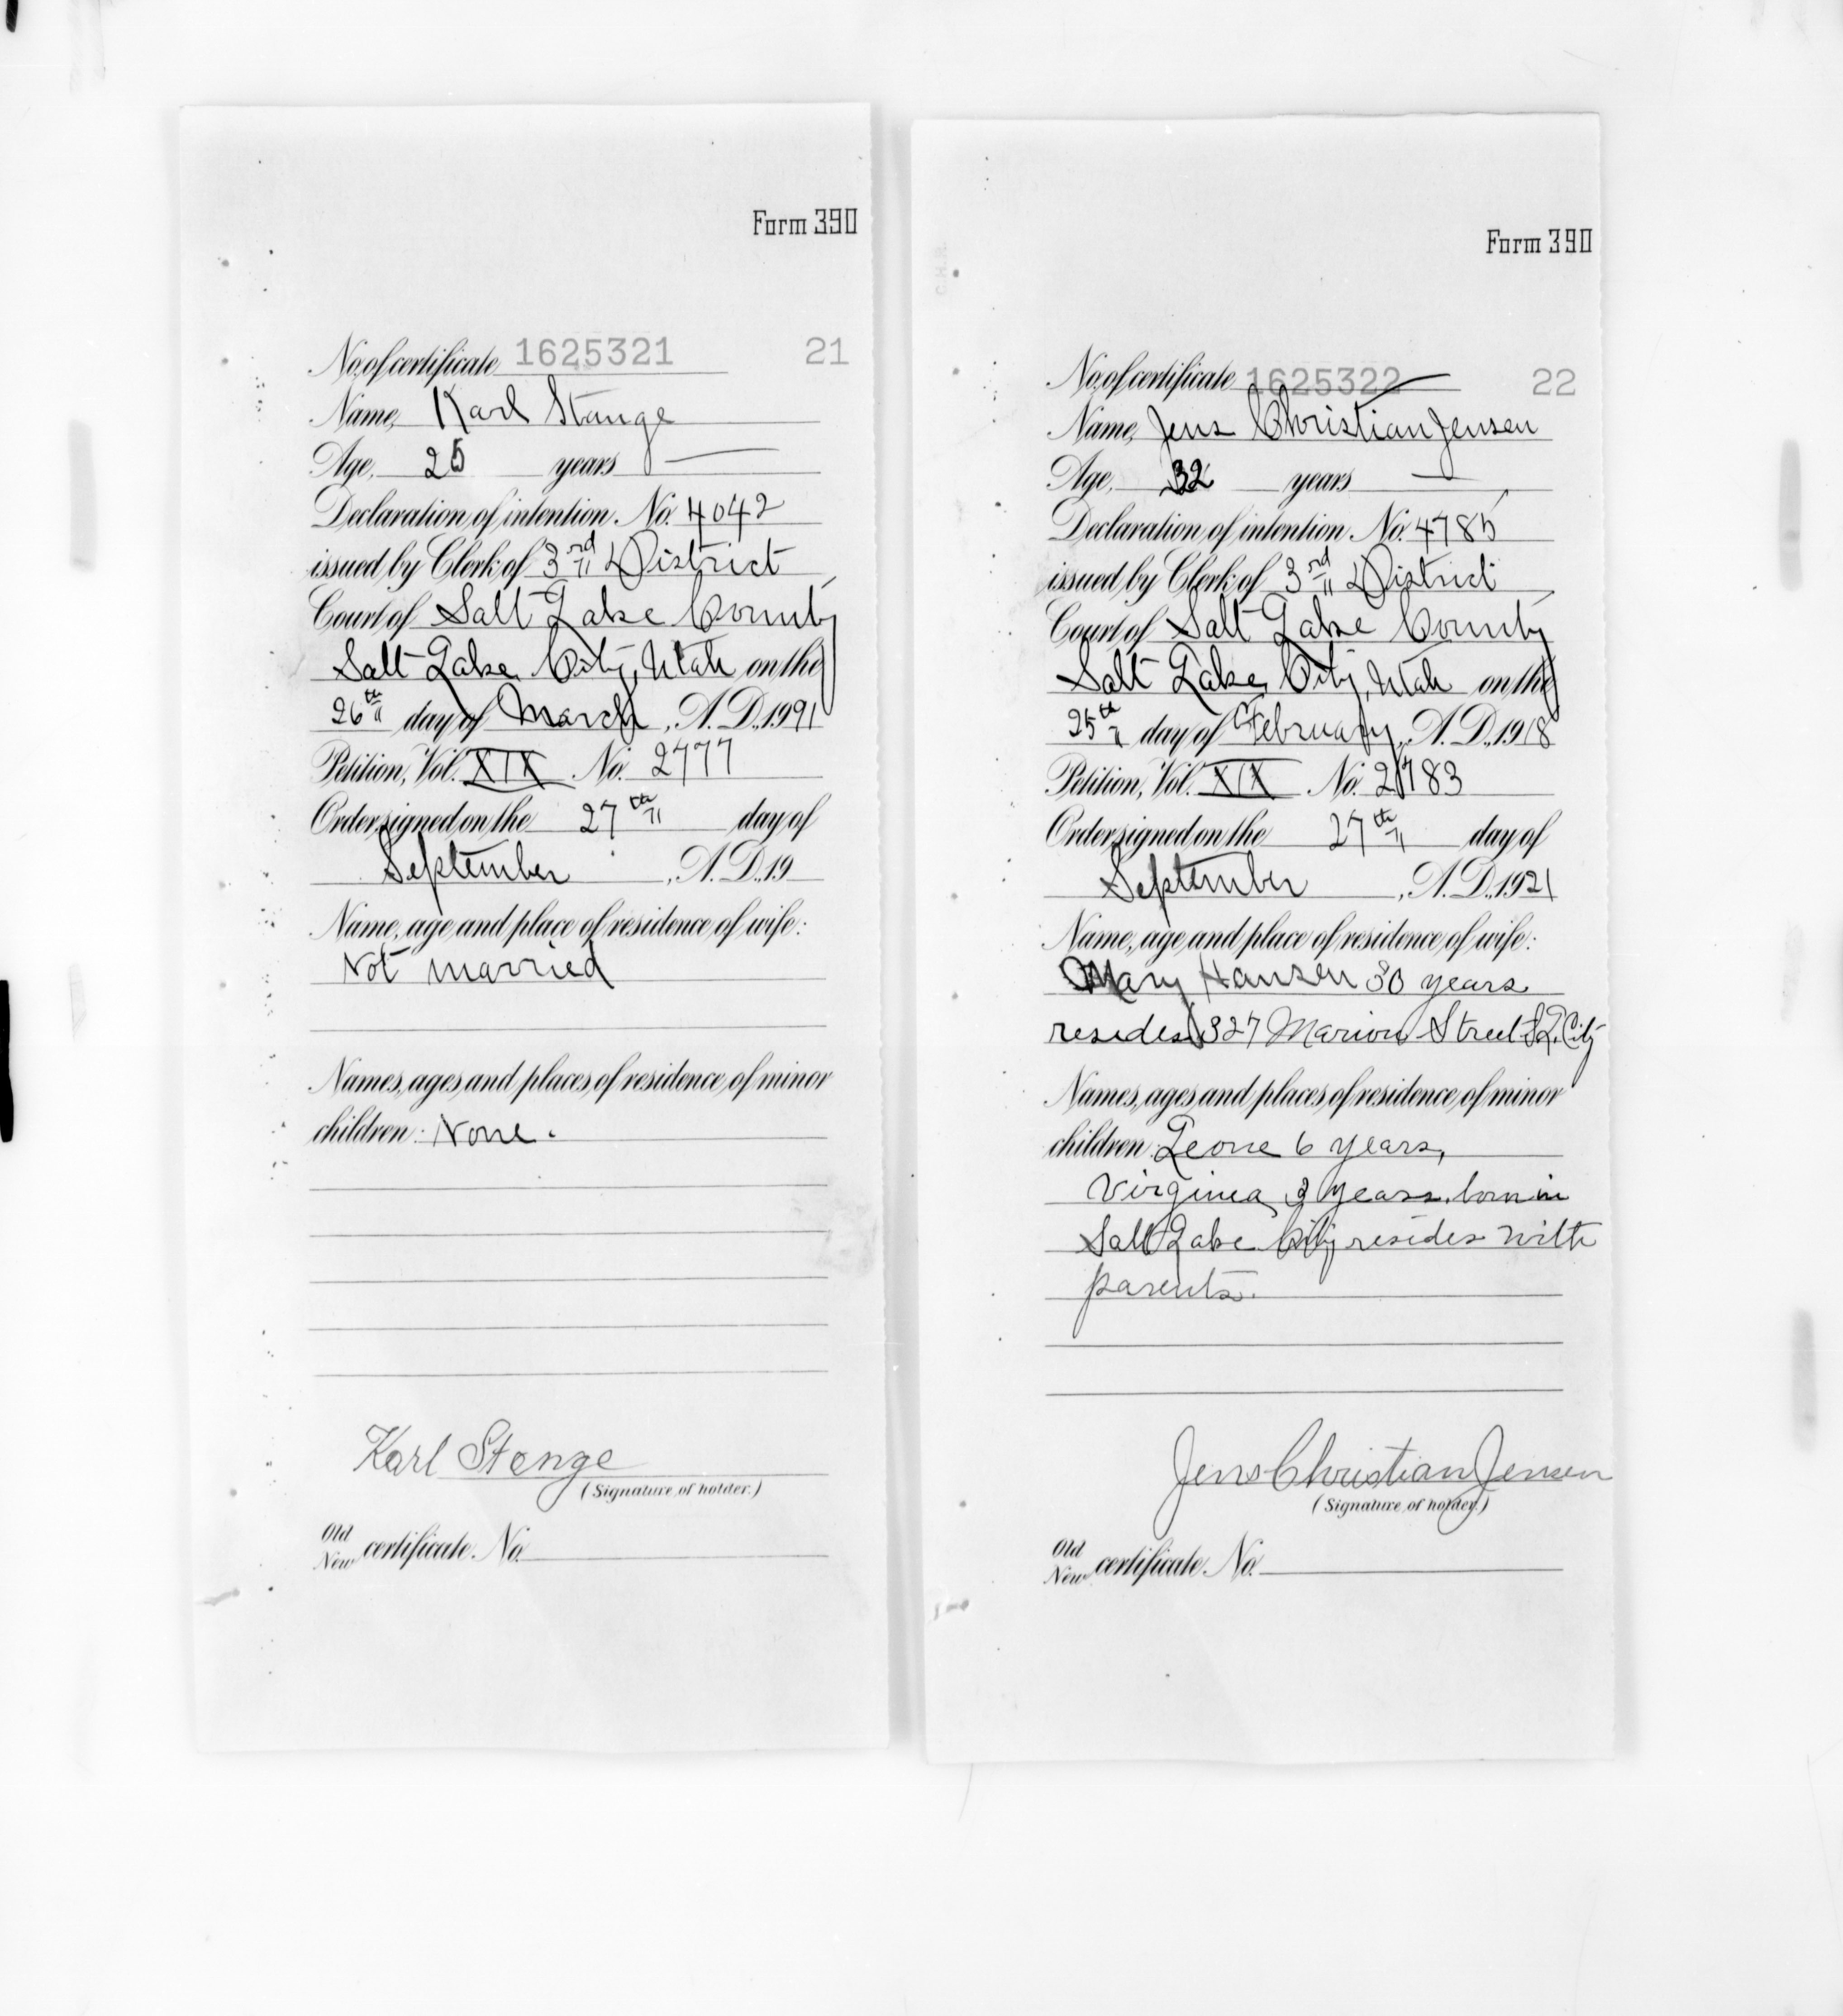 Form 390
No. of certificate 1625321 21
Name, Karl Stange
Age, 25 years
Declaration of intention No. 4042
issued by Clerk of 3rd District
Court of Salt Lake County,
Salt Lake City, Utah on the
26th day of March, A.D., 1991
Petition, Vol. XIX No. 2777
Order signed on the 27th day of
September, A.D., 19
Name, age and place of residence of wife:
Not married
Names, ages and places of residence of minor
children: None.
Karl Stange
(Signature of holder.)
Old
New certificate No.
Form 390
C.H.R.
No. of certificate 1625322 22
Name, Jens Christian Jensen
Age, 32 years
Declaration of intention No. 4785
issued by Clerk of 3rd District
Court of Salt Lake County,
Salt Lake City, Utah on the
25th day of February, A.D., 1918
Petition, Vol. XIX No. 2783
Order signed on the 27th day of
September, A.D., 1921
Name, age and place of residence of wife:
Mary Hansen 30 years
resides 327 Marion Street S.L. City
Names, ages and places of residence of minor
children: Leone 6 years,
Virginia 3 years, born in
Salt Lake City resides with
parents.
Jens Christian Jensen
(Signature of holder.)
Old
New certificate No.